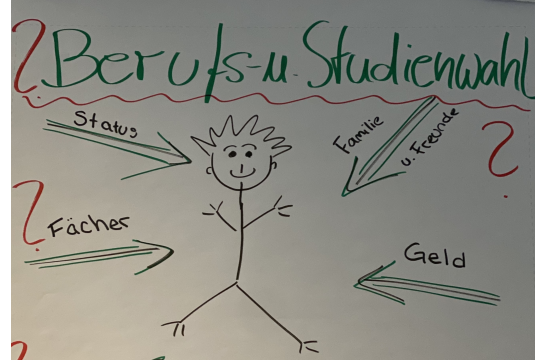 ? Berufs-u. Studienwahl
Status
Familie
u. Freunde
?
?
Fächer
Geld
?